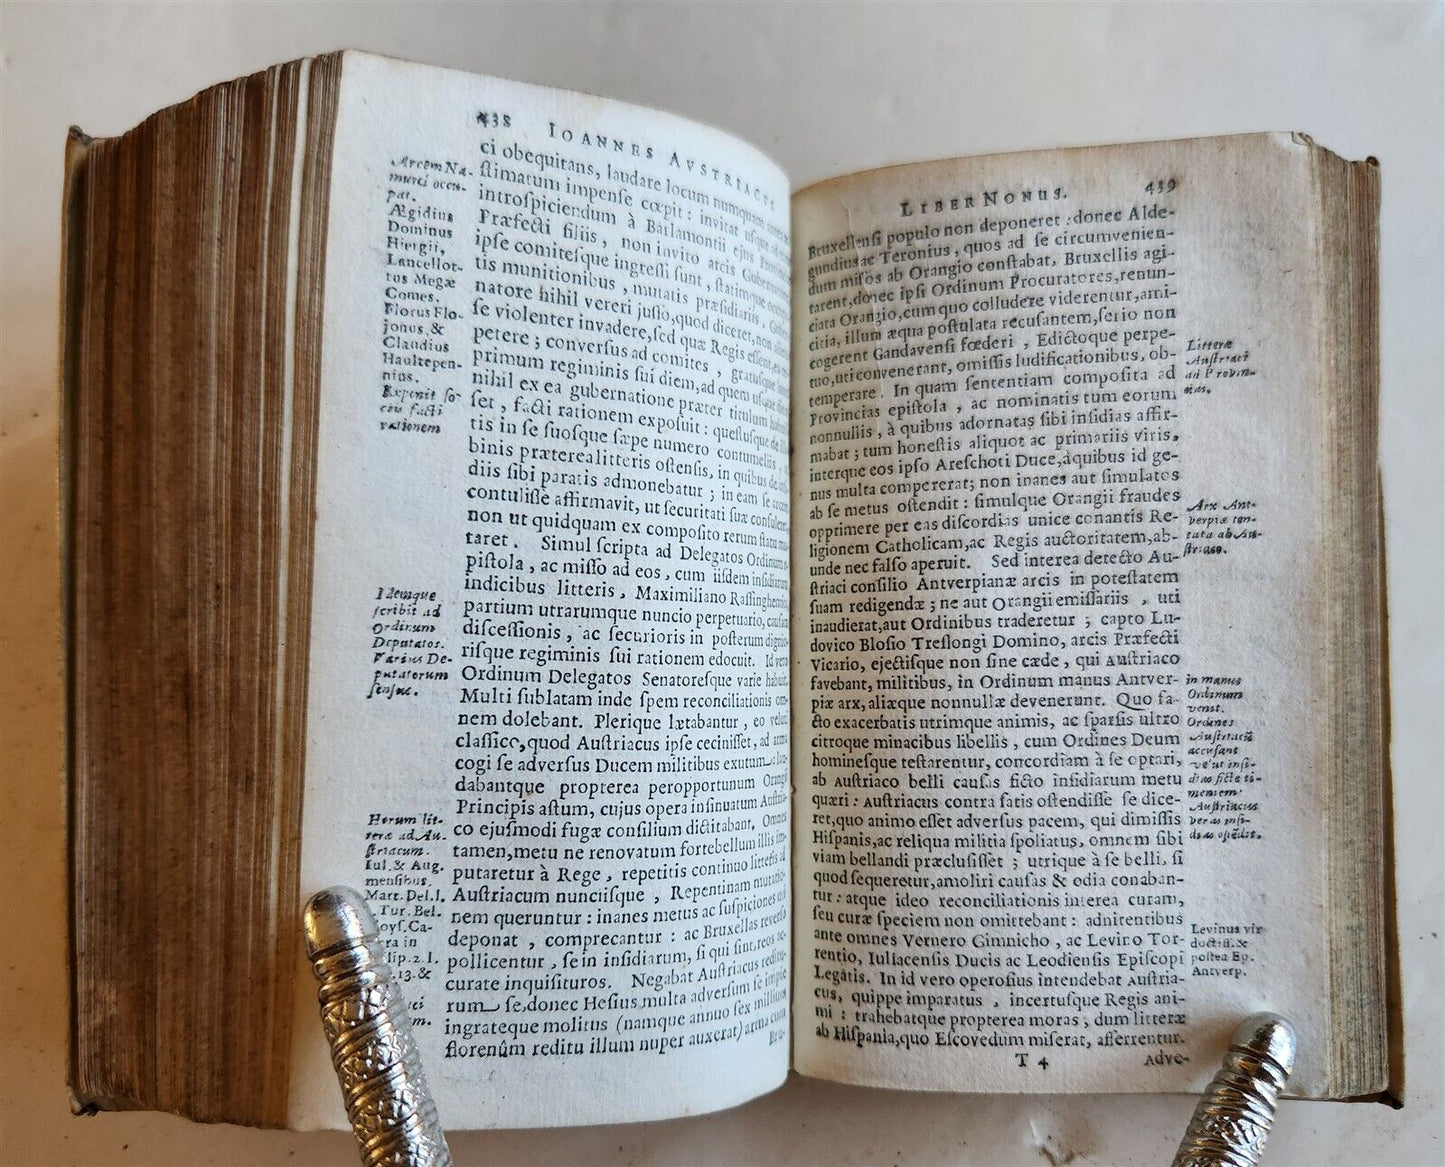 438 IOANNES AVSTRIACVS
Arcem Na-
murci occu-
pat.
Ægidius
Dominus
Hiergii,
Lancellot-
tus Megæ
Comes.
Florus Flo-
jonus, &
Claudius
Haultepen-
nius.
Exponit so-
ciis facti
rationem
Idemque
scribit ad
Ordinum
Deputatos.
Varius De-
putatorum
sensus.
Horum lit-
teræ ad Au-
striacum.
Iul. & Aug.
mensibus.
Mart. Del. l.
Tur. Bel.
ra in
lip. 2. l.
13. &
ci obequitans, laudare locum numquam
stimatum impense cœpit: invitat
introspiciendum à Barlamontii ejus
Præfecti filiis, non invito arcis Guber
ipse comitesque ingressi sunt, statimque
tis munitionibus, mutatis præsidiariis, Guber
natore nihil vereri jusso, quod diceret, non
se violenter invadere, sed quæ Regis essent,
petere; conversus ad comites, gratusque
primum regiminis sui diem, ad quem usque diem
nihil ex ea gubernatione præter titulum
set, facti rationem exposuit: questusque de
tis in se suosque sæpe numero contumeliis,
binis præterea litteris ostensis, in quibus de insi-
diis sibi paratis admonebatur; in eam se arcem
contulisse affirmavit, ut securitati suæ consuleret,
non ut quidquam ex composito rerum statu mu-
taret. Simul scripta ad Delegatos Ordinum e-
pistola, ac misso ad eos, cum iisdem insidiarum
indicibus litteris, Maximiliano Rassinghemio,
partium utrarumque nuncio perpetuario, causam
discessionis, ac securioris in posterum dignio-
risque regiminis sui rationem edocuit. Id vero
Ordinum Delegatos Senatoresque varie habuit.
Multi sublatam inde spem reconciliationis om-
nem dolebant. Plerique lætabantur, eo velut
classico, quod Austriacus ipse cecinisset, ad arma
cogi se adversus Ducem militibus exutum: lau-
dabantque propterea peropportunum Orangii
Principis astum, cujus opera insinuatum Austria-
co ejusmodi fugæ consilium dictitabant. Omnes
tamen, metu ne renovatum forte bellum illis im-
putaretur à Rege, repetitis continuo litteris ad
Austriacum nunciisque, Repentinam mutatio-
nem queruntur: inanes metus ac suspiciones uti
deponat, comprecantur: ac Bruxellas reverso
pollicentur, se in insidiarum, si qui sint, reos ac-
curate inquisituros. Negabat Austriacus reditu-
rum se, donec Hesius multa adversum se impie
ingrateque molitus (namque annuo sex millium
florenûm reditu illum nuper auxerat) arma cum
Bru-
LIBER NONUS. 439
Bruxellensi populo non deponeret: donec Alde-
gundius ac Teronius, quos ad se circumvenien-
dum missos ab Orangio constabat, Bruxellis agi-
tarent, donec ipsi Ordinum Procuratores, renun-
ciata Orangio, cum quo colludere viderentur, ami-
citia, illum æqua postulata recusantem, serio non
cogerent Gandavensi fœderi, Edictoque perpe-
tuo, uti convenerant, omissis ludificationibus, ob-
temperare. In quam sententiam composita ad
Provincias epistola, ac nominatis tum eorum
nonnullis, à quibus adornatas sibi insidias affir-
mabat; tum honestis aliquot ac primariis viris,
interque eos ipso Areschoti Duce, à quibus id ge-
nus multa compererat; non inanes aut simulatos
ab se metus ostendit: simulque Orangii fraudes
opprimere per eas discordias unice conantis Re-
ligionem Catholicam, ac Regis auctoritatem, ab-
unde nec falso aperuit. Sed interea detecto Au-
striaci consilio Antverpianæ arcis in potestatem
suam redigendæ; ne aut Orangii emissariis, uti
inaudierat, aut Ordinibus traderetur; capto Lu-
dovico Blosio Treslongi Domino, arcis Præfecti
Vicario, ejectisque non sine cæde, qui Austriaco
favebant, militibus, in Ordinum manus Antver-
piæ arx, aliæque nonnullæ devenerunt. Quo fa-
cto exacerbatis utrimque animis, ac sparsis ultro
citroque minacibus libellis, cum Ordines Deum
hominesque testarentur, concordiam à se optari,
ab Austriaco belli causas ficto insidiarum metu
quæri: Austriacus contra satis ostendisse se dice-
ret, quo animo esset adversus pacem, qui dimissis
Hispanis, ac reliqua militia spoliatus, omnem sibi
viam bellandi præclusisset; utrique à se belli, si
quod sequeretur, amoliri causas & odia conaban-
tur: atque ideo reconciliationis interea curam,
seu curæ speciem non omittebant: adnitentibus
ante omnes Vernero Gimnicho, ac Levino Tor-
rentio, Iuliacensis Ducis ac Leodiensis Episcopi
Legatis. In id vero operosius intendebat Austria-
cus, quippe imparatus, incertusque Regis ani-
mi: trahebatque propterea moras, dum litteræ
ab Hispania, quo Escovedum miserat, afferrentur.
T 4 Adve-
Litteræ
Austriaci
ad Provin-
cias.
Arx Ant-
verpiæ ten-
tata ab Au-
striaco.
in manus
Ordinum
venit.
Ordines
Austriacũ
accusant
velut insi-
dias ficte ti-
mentem.
Austriacus
veras insi-
dias ostẽdit.
Levinus vir
doctiss. &
postea Ep.
Antverp.